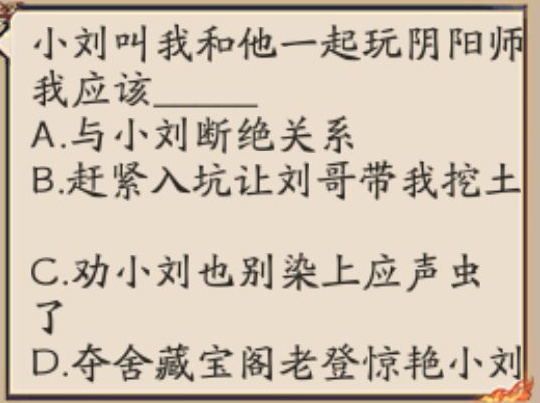 小刘叫我和他一起玩阴阳师
我应该_____
A.与小刘断绝关系
B.赶紧入坑让刘哥带我挖土
C.劝小刘也别染上应声虫
了
D.夺舍藏宝阁老登惊艳小刘